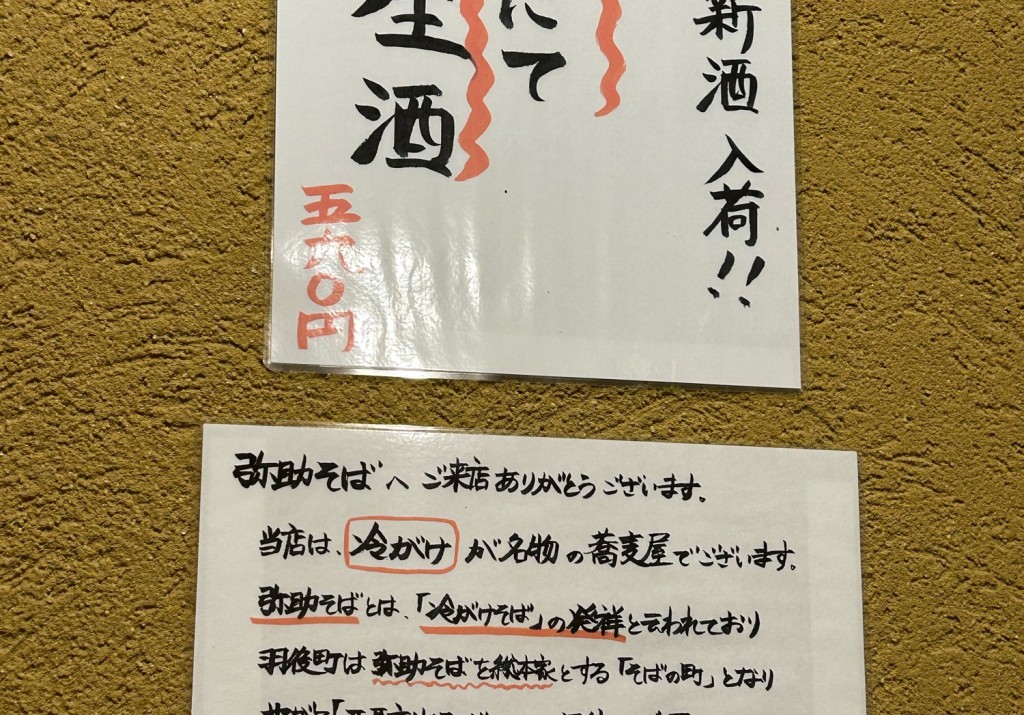 新酒入荷!!
にて
生酒
五六〇円
弥助そばへご来店ありがとうございます。
当店は、冷がけが名物の蕎麦屋でございます。
弥助そばとは、「冷がけそば」の発祥と云われており
羽後町は弥助そばを総本家とする「そばの町」となり